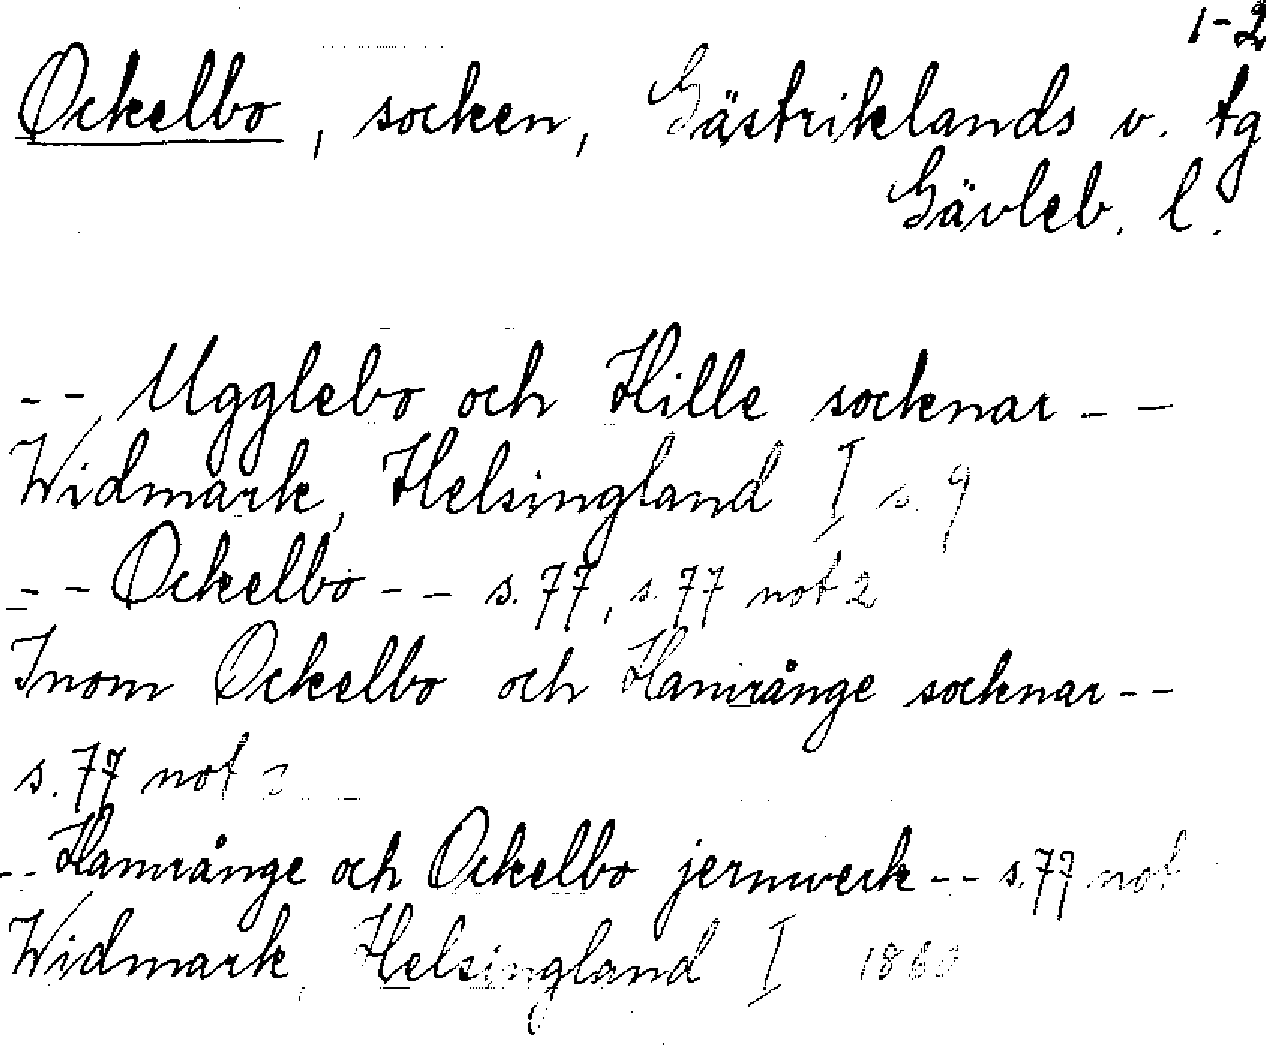 1-2
Ockelbo, socken, Gästriklands v. tg
Gävleb. l.
-- Ugglebo och Hille socknar --
Widmark, Helsingland I s. 9
-- Ockelbo -- s. 77, s. 77 not 2
Inom Ockelbo och Hamrånge socknar --
s. 77 not 2
-- Hamrånge och Ockelbo jernwerk -- s. 77 not
Widmark, Helsingland I 1860